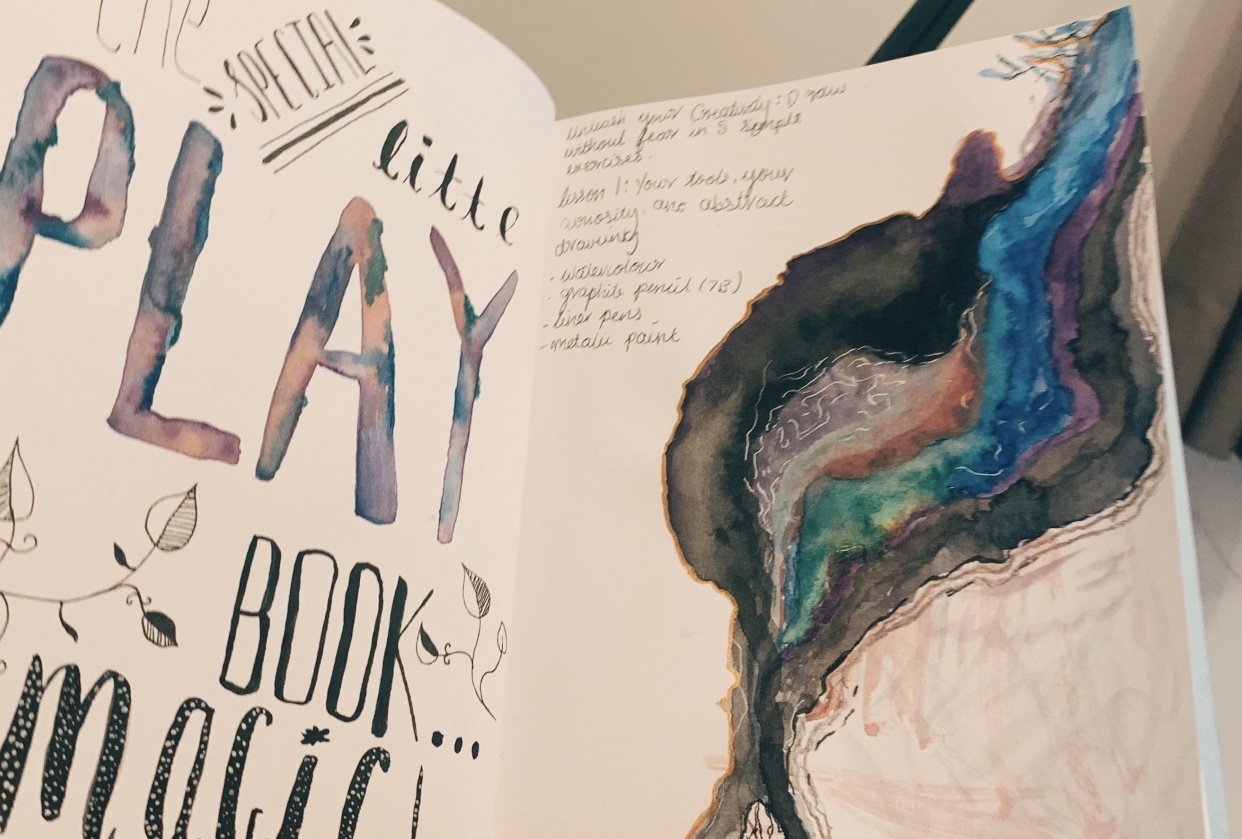 the
SPECIAL
little
PLAY
BOOK...
magic!
Unleash your Creativity: Draw
without fear in 5 simple
exercises.
lesson 1: Your tools, your
curiosity, and abstract
drawing
- watercolour
- graphite pencil (7B)
- liner pens
- metalic paint